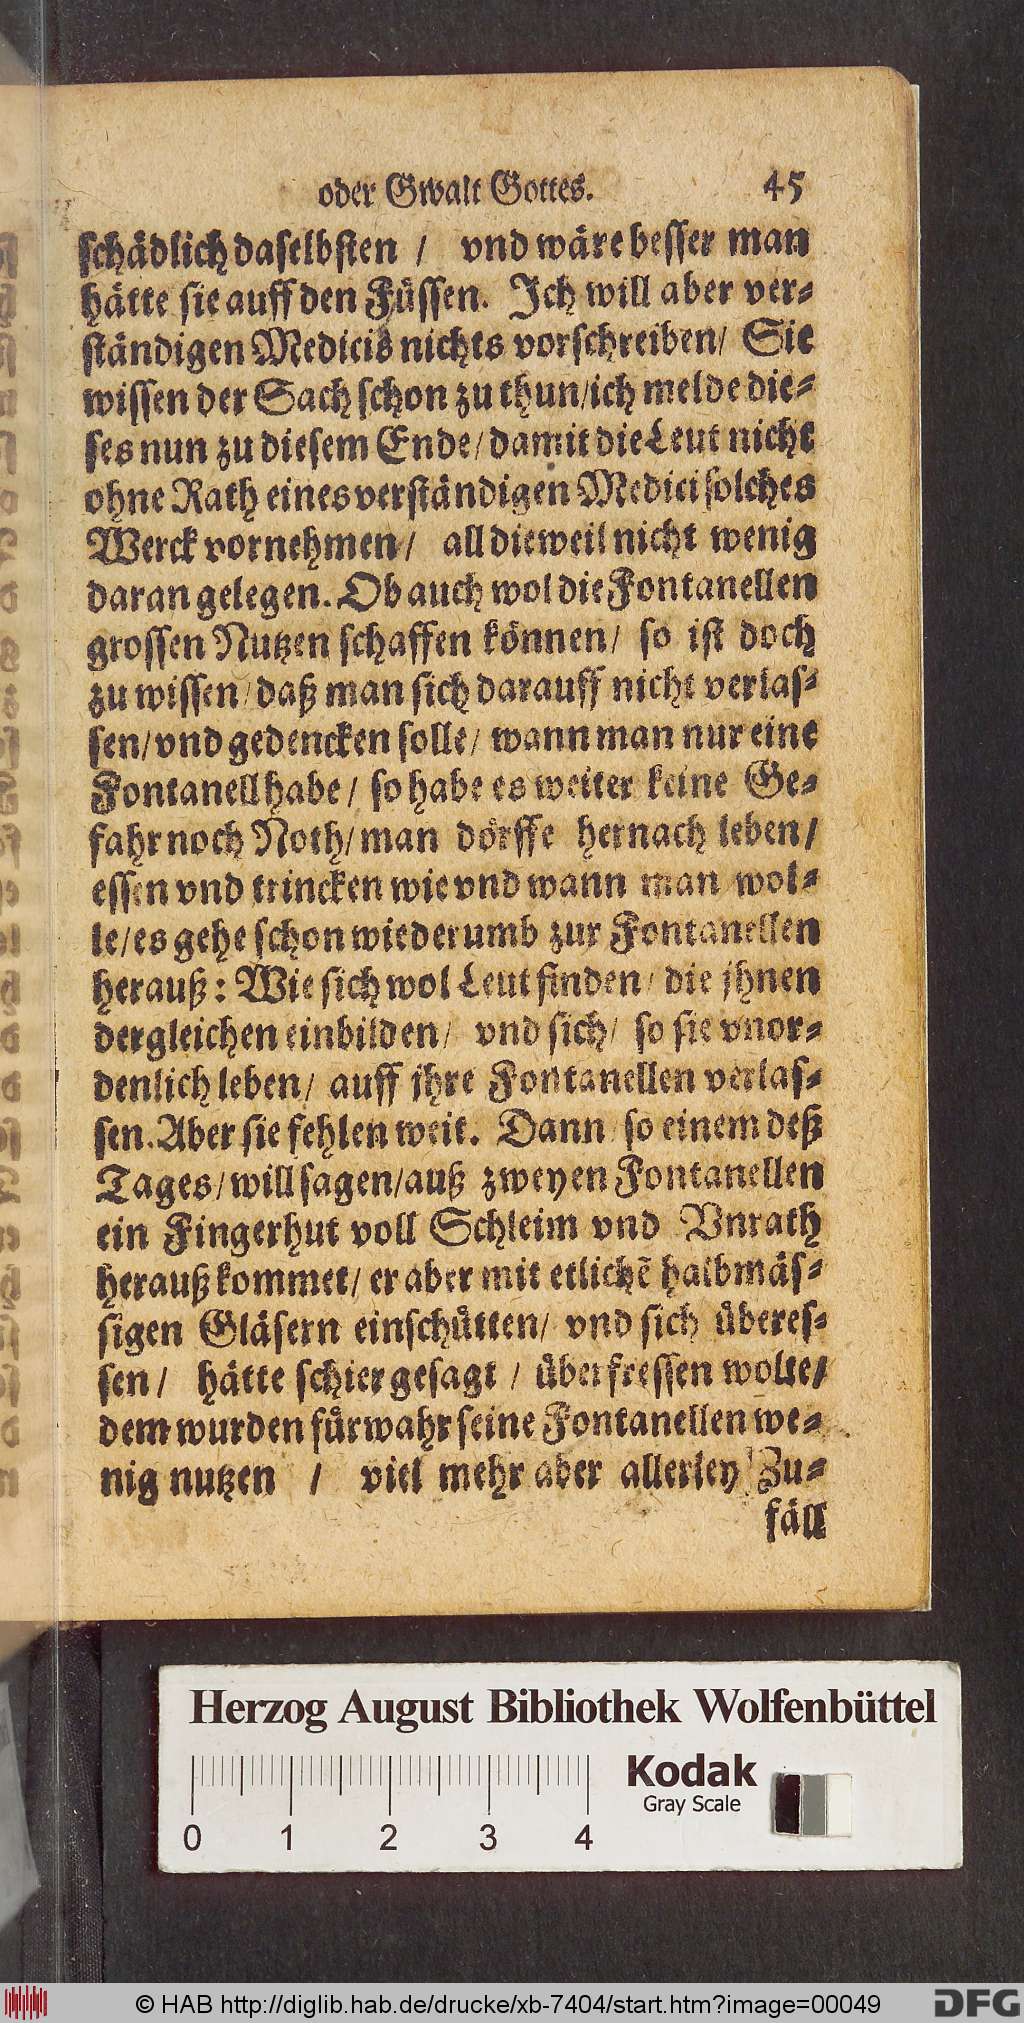 oder Gwalt Gottes. 45
schädlich daselbsten / vnd wäre besser man
hätte sie auff den Füssen. Ich will aber ver-
ständigen Medicis nichts vorschreiben/ Sie
wissen der Sach schon zu thun/ich melde die-
ses nun zu diesem Ende/damit die Leut nicht
ohne Rath eines verständigen Medici solches
Werck vornehmen/ all dieweil nicht wenig
daran gelegen. Ob auch wol die Fontanellen
grossen Nutzen schaffen können/ so ist doch
zu wissen/daß man sich darauff nicht verlas-
sen/vnd gedencken solle/ wann man nur eine
Fontanell habe/ so habe es weiter keine Ge-
fahr noch Noth/man dörffe hernach leben/
essen vnd trincken wie vnd wann man wol-
le/es gehe schon wiederumb zur Fontanellen
herauß: Wie sich wol Leut finden/ die jhnen
dergleichen einbilden/ vnd sich/ so sie vnor-
denlich leben/ auff jhre Fontanellen verlas-
sen. Aber sie fehlen weit. Dann so einem deß
Tages/will sagen/auß zweyen Fontanellen
ein Fingerhut voll Schleim vnd Vnrath
herauß kommet/ er aber mit etlichē halbmäs-
sigen Gläsern einschütten/ vnd sich überes-
sen/ hätte schier gesagt / überfressen wolte/
dem wurden fürwahr seine Fontanellen we-
nig nutzen / viel mehr aber allerley Zu-
fäll
Herzog August Bibliothek Wolfenbüttel
Kodak
Gray Scale
0 1 2 3 4
© HAB http://diglib.hab.de/drucke/xb-7404/start.htm?image=00049
DFG